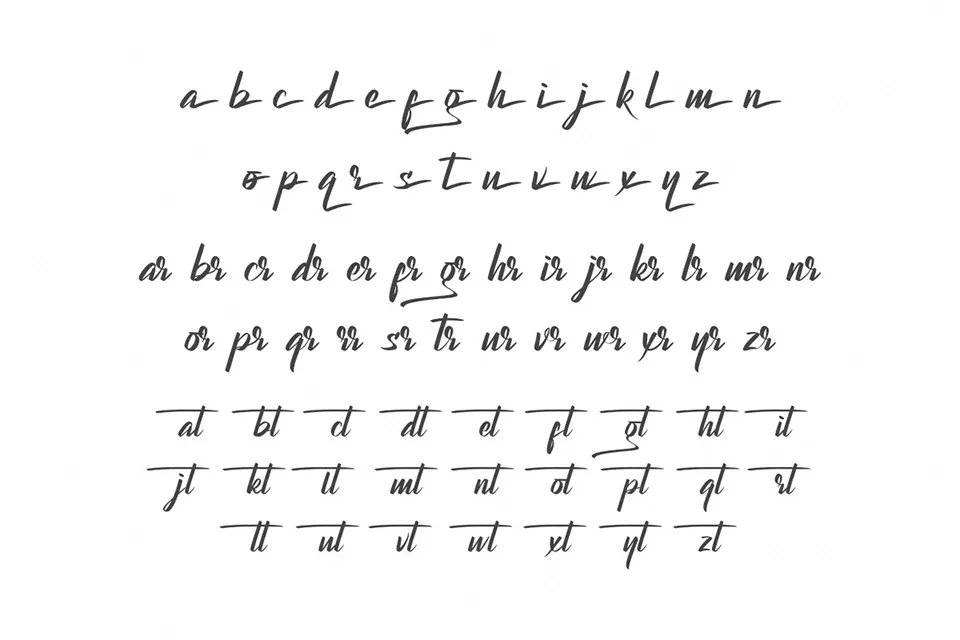 a b c d e f g h i j k l m n
o p q r s t u v w x y z
ar br cr dr er fr gr hr ir jr kr lr mr nr
or pr qr rr sr tr ur vr wr xr yr zr
at bt ct dt et ft gt ht it
jt kt lt mt nt ot pt qt rt
tt ut vt wt xt yt zt